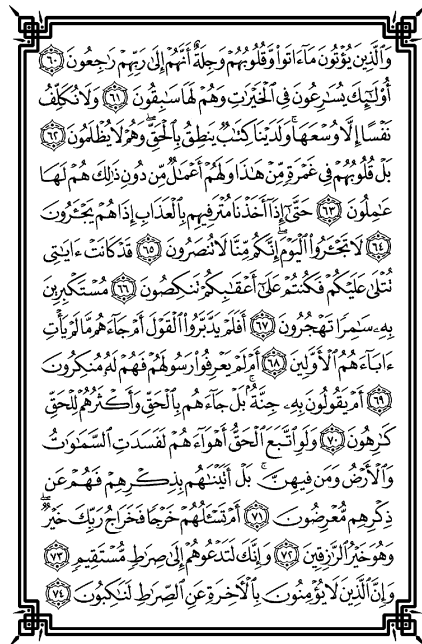 وَالَّذِينَ يُؤْتُونَ مَا ءَاتَوا۟ وَّقُلُوبُهُمْ وَجِلَةٌ أَنَّهُمْ إِلَىٰ رَبِّهِمْ رَٰجِعُونَ ﴿٦٠﴾
أُو۟لَٰٓئِكَ يُسَٰرِعُونَ فِي الْخَيْرَٰتِ وَهُمْ لَهَا سَٰبِقُونَ ﴿٦١﴾ وَلَا نُكَلِّفُ
نَفْسًا إِلَّا وُسْعَهَا ۖ وَلَدَيْنَا كِتَٰبٌ يَنطِقُ بِالْحَقِّ ۚ وَهُمْ لَا يُظْلَمُونَ ﴿٦٢﴾
بَلْ قُلُوبُهُمْ فِي غَمْرَةٍ مِّنْ هَٰذَا وَلَهُمْ أَعْمَٰلٌ مِّن دُونِ ذَٰلِكَ هُمْ لَهَا
عَٰمِلُونَ ﴿٦٣﴾ حَتَّىٰٓ إِذَآ أَخَذْنَا مُتْرَفِيهِم بِالْعَذَابِ إِذَا هُمْ يَجْـَٔرُونَ
﴿٦٤﴾ لَا تَجْـَٔرُوا۟ الْيَوْمَ ۖ إِنَّكُم مِّنَّا لَا تُنصَرُونَ ﴿٦٥﴾ قَدْ كَانَتْ ءَايَٰتِي
تُتْلَىٰ عَلَيْكُمْ فَكُنتُمْ عَلَىٰٓ أَعْقَٰبِكُمْ تَنكِصُونَ ﴿٦٦﴾ مُسْتَكْبِرِينَ
بِهِۦ سَٰمِرًا تَهْجُرُونَ ﴿٦٧﴾ أَفَلَمْ يَدَّبَّرُوا۟ الْقَوْلَ أَمْ جَآءَهُم مَّا لَمْ يَأْتِ
ءَابَآءَهُمُ الْأَوَّلِينَ ﴿٦٨﴾ أَمْ لَمْ يَعْرِفُوا۟ رَسُولَهُمْ فَهُمْ لَهُۥ مُنكِرُونَ
﴿٦٩﴾ أَمْ يَقُولُونَ بِهِۦ جِنَّةٌۢ ۚ بَلْ جَآءَهُم بِالْحَقِّ وَأَكْثَرُهُمْ لِلْحَقِّ
كَٰرِهُونَ ﴿٧٠﴾ وَلَوِ اتَّبَعَ الْحَقُّ أَهْوَآءَهُمْ لَفَسَدَتِ السَّمَٰوَٰتُ
وَالْأَرْضُ وَمَن فِيهِنَّ ۚ بَلْ أَتَيْنَٰهُم بِذِكْرِهِمْ فَهُمْ عَن
ذِكْرِهِم مُّعْرِضُونَ ﴿٧١﴾ أَمْ تَسْـَٔلُهُمْ خَرْجًا فَخَرَاجُ رَبِّكَ خَيْرٌ ۖ
وَهُوَ خَيْرُ الرَّٰزِقِينَ ﴿٧٢﴾ وَإِنَّكَ لَتَدْعُوهُمْ إِلَىٰ صِرَٰطٍ مُّسْتَقِيمٍ ﴿٧٣﴾
وَإِنَّ الَّذِينَ لَا يُؤْمِنُونَ بِالْـَٔاخِرَةِ عَنِ الصِّرَٰطِ لَنَٰكِبُونَ ﴿٧٤﴾